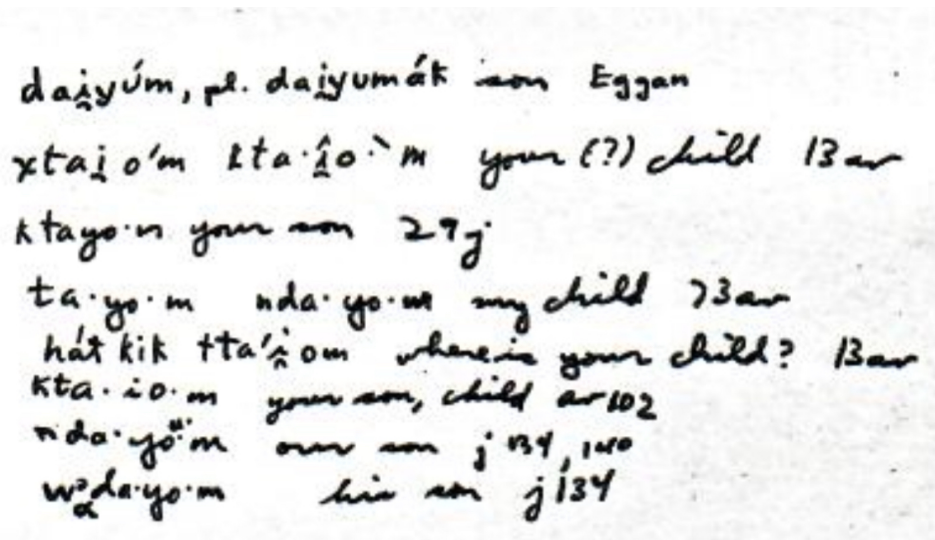 dai̯yúm, pl. dai̯yumák son Eggan
xtai̯o'm kta·i̯o·`m your (?) child 13av
ktayo·n your son 29j
ta·yo·m nda·yo·m my child 73av
hát kik tta'i̯om where is your child? 13av
kta·io·m your son, child av102
nda·yo·m our son j 134, 140
da·yo·m his son j134